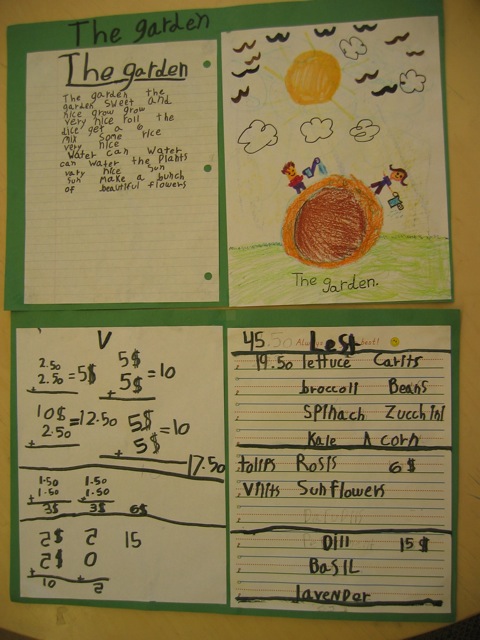 The garden
The garden
The garden the
garden sweet and
nice grow grow
very nice Roll the
dice get a 6
mix some rice
very nice
Water can Water
can water the Plants
vary nice sun
sun make a bunch
of beautiful flowers
The garden.
V
2.50
2.50 =5$
+
5$
5$ =10
+
10$ =12.50
2.50
+
5$
5$ =10
+
17.50
1.50
+1.50
3$
1.50
+1.50
3$
6$
5$ 5 15
5$ 0
+10 +5
45.50 best!
LeSt
19.50 lettuce Carits
broccoli Beans
SPinach Zucchini
Kale A corn
tolips Rosis 6$
Vilits Sunflowers
Dill 15$
BaSIL
lavender